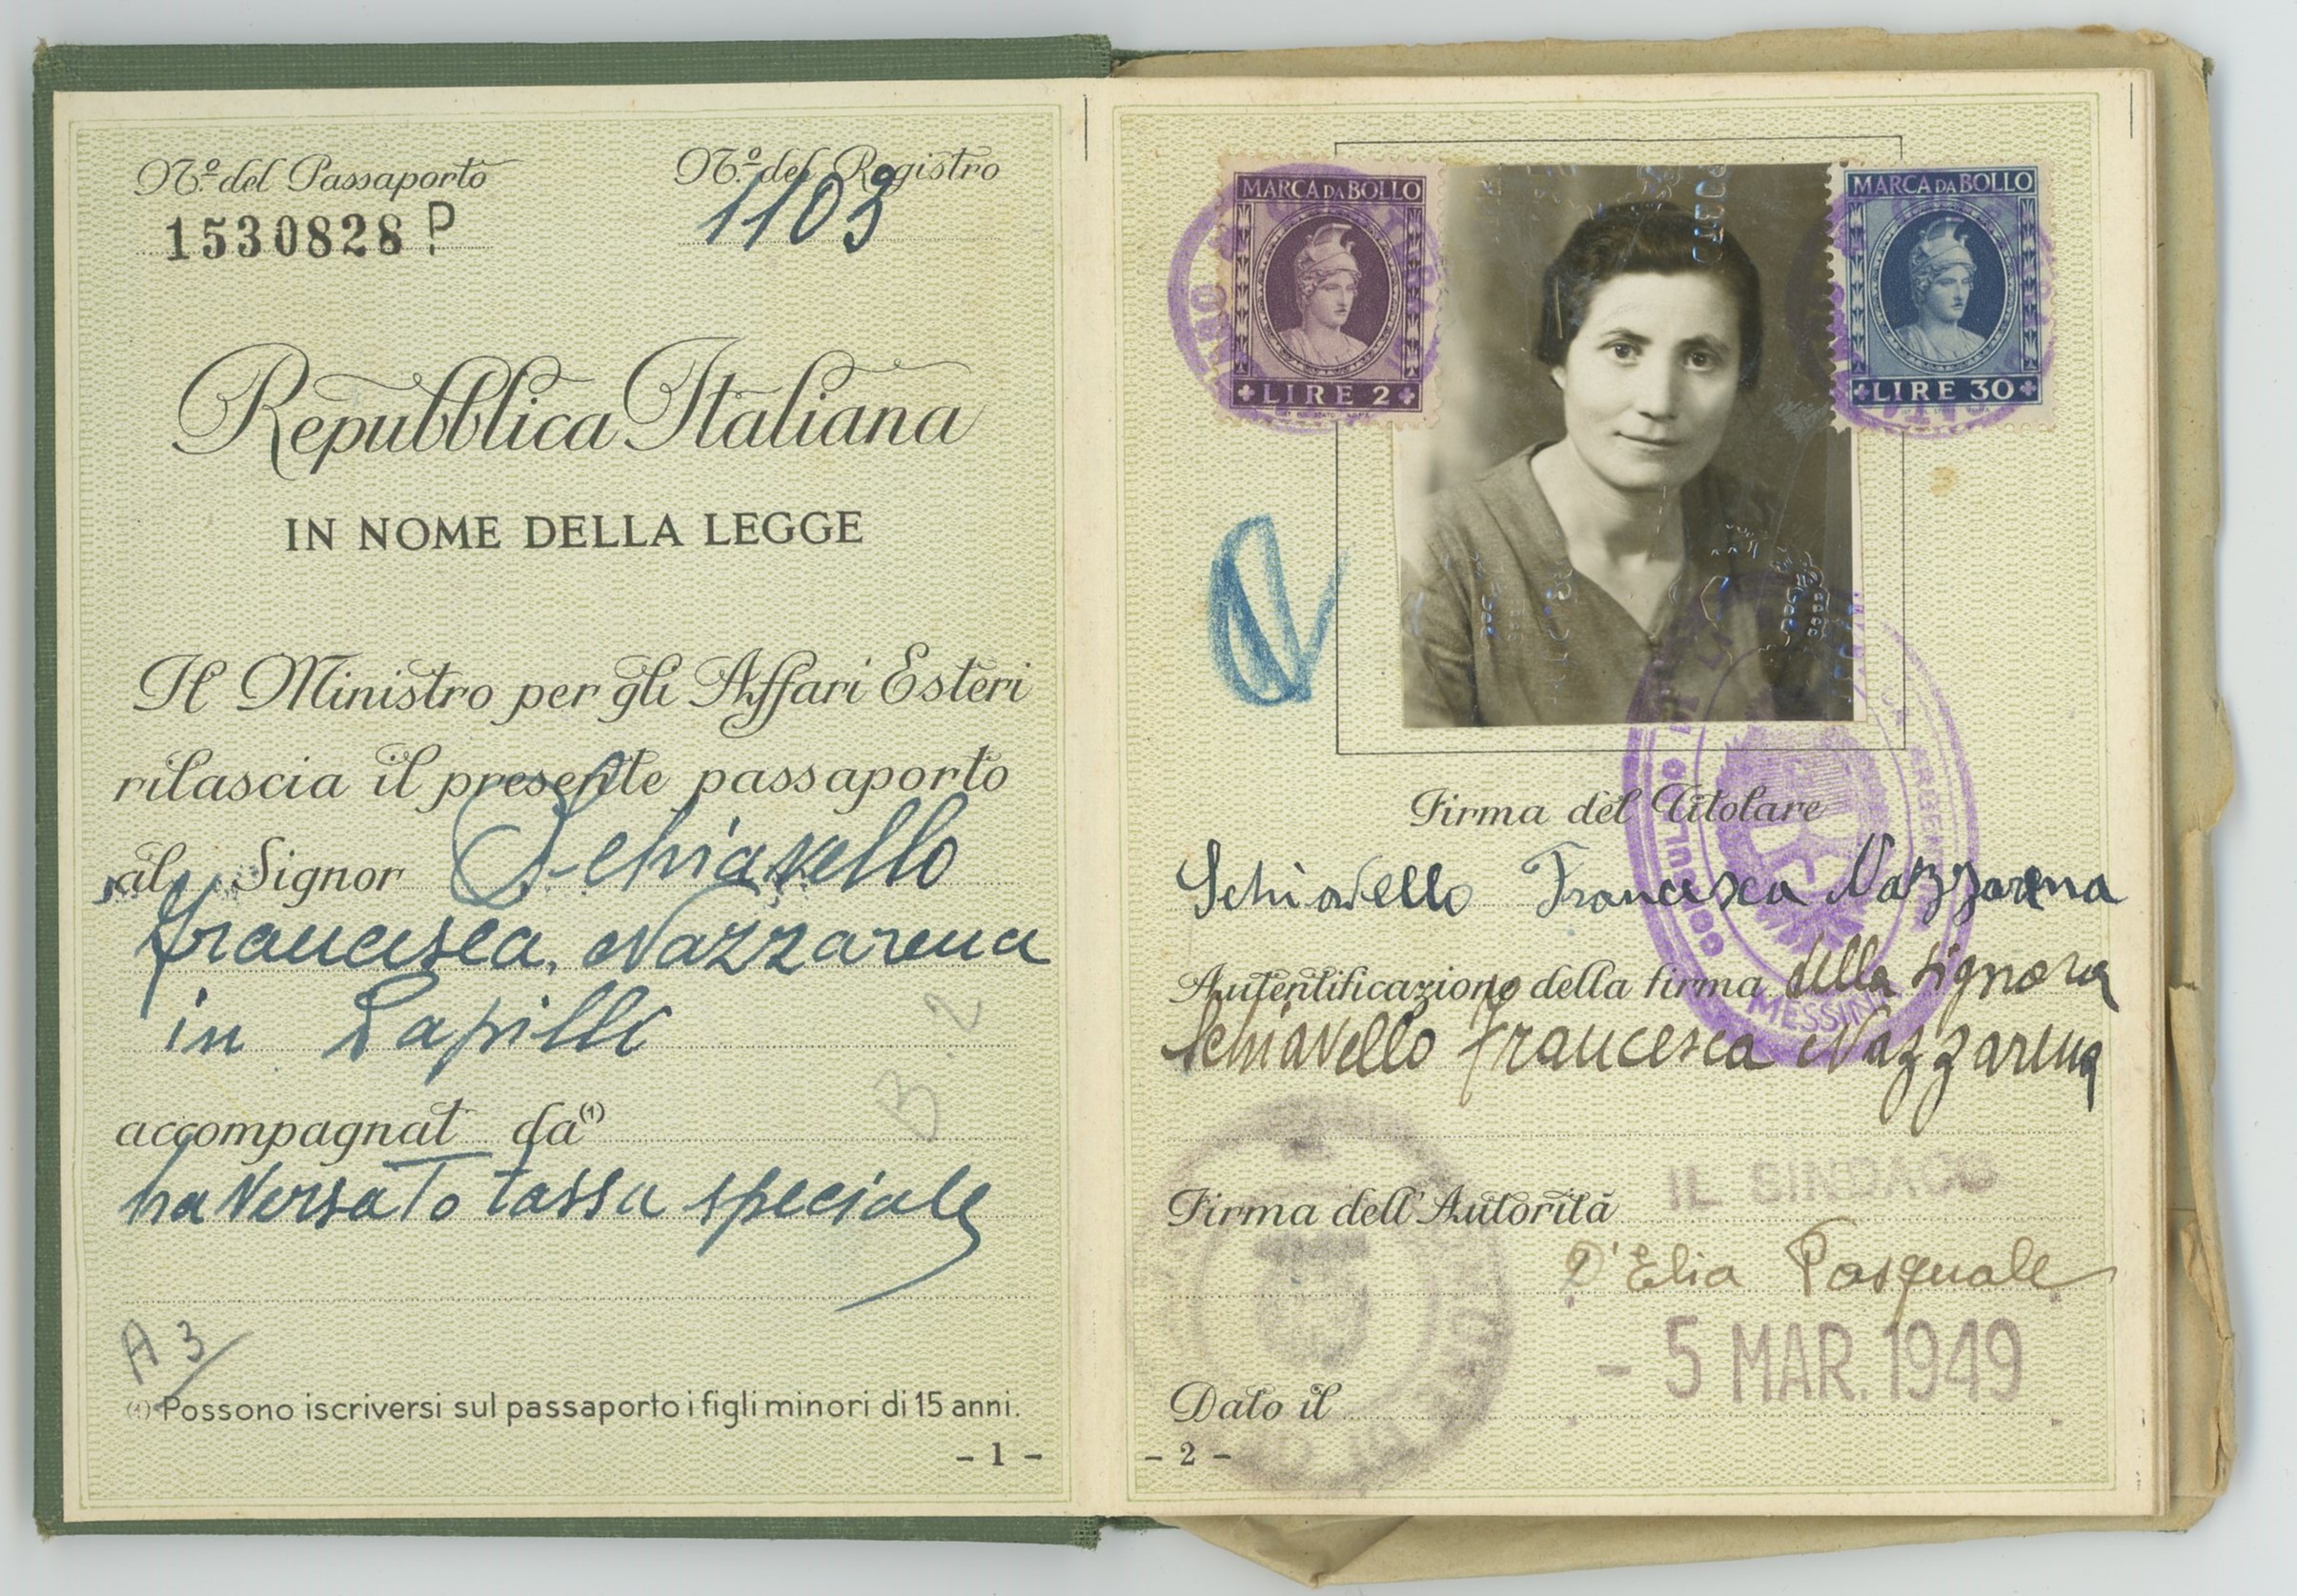 Nº del Passaporto
1530828 P
Nº del Registro
1103
Repubblica Italiana
IN NOME DELLA LEGGE
Il Ministro per gli Affari Esteri
rilascia il presente passaporto
al Signor Schiavello
Francesca, Nazzarena
in Lapillo
B.2
accompagnat da (1)
ha versato tassa speciale
A 3
(1) Possono iscriversi sul passaporto i figli minori di 15 anni.
- 1 -
MARCA DA BOLLO
LIRE 2
MARCA DA BOLLO
LIRE 30
Firma del Titolare
Schiavello Francesca Nazzarena
Autentificazione della firma della signora
Schiavello Francesca Nazzarena
MESSINA
Firma dell'Autorità IL SINDACO
D'Elia Pasquale
Dato il - 5 MAR. 1949
- 2 -